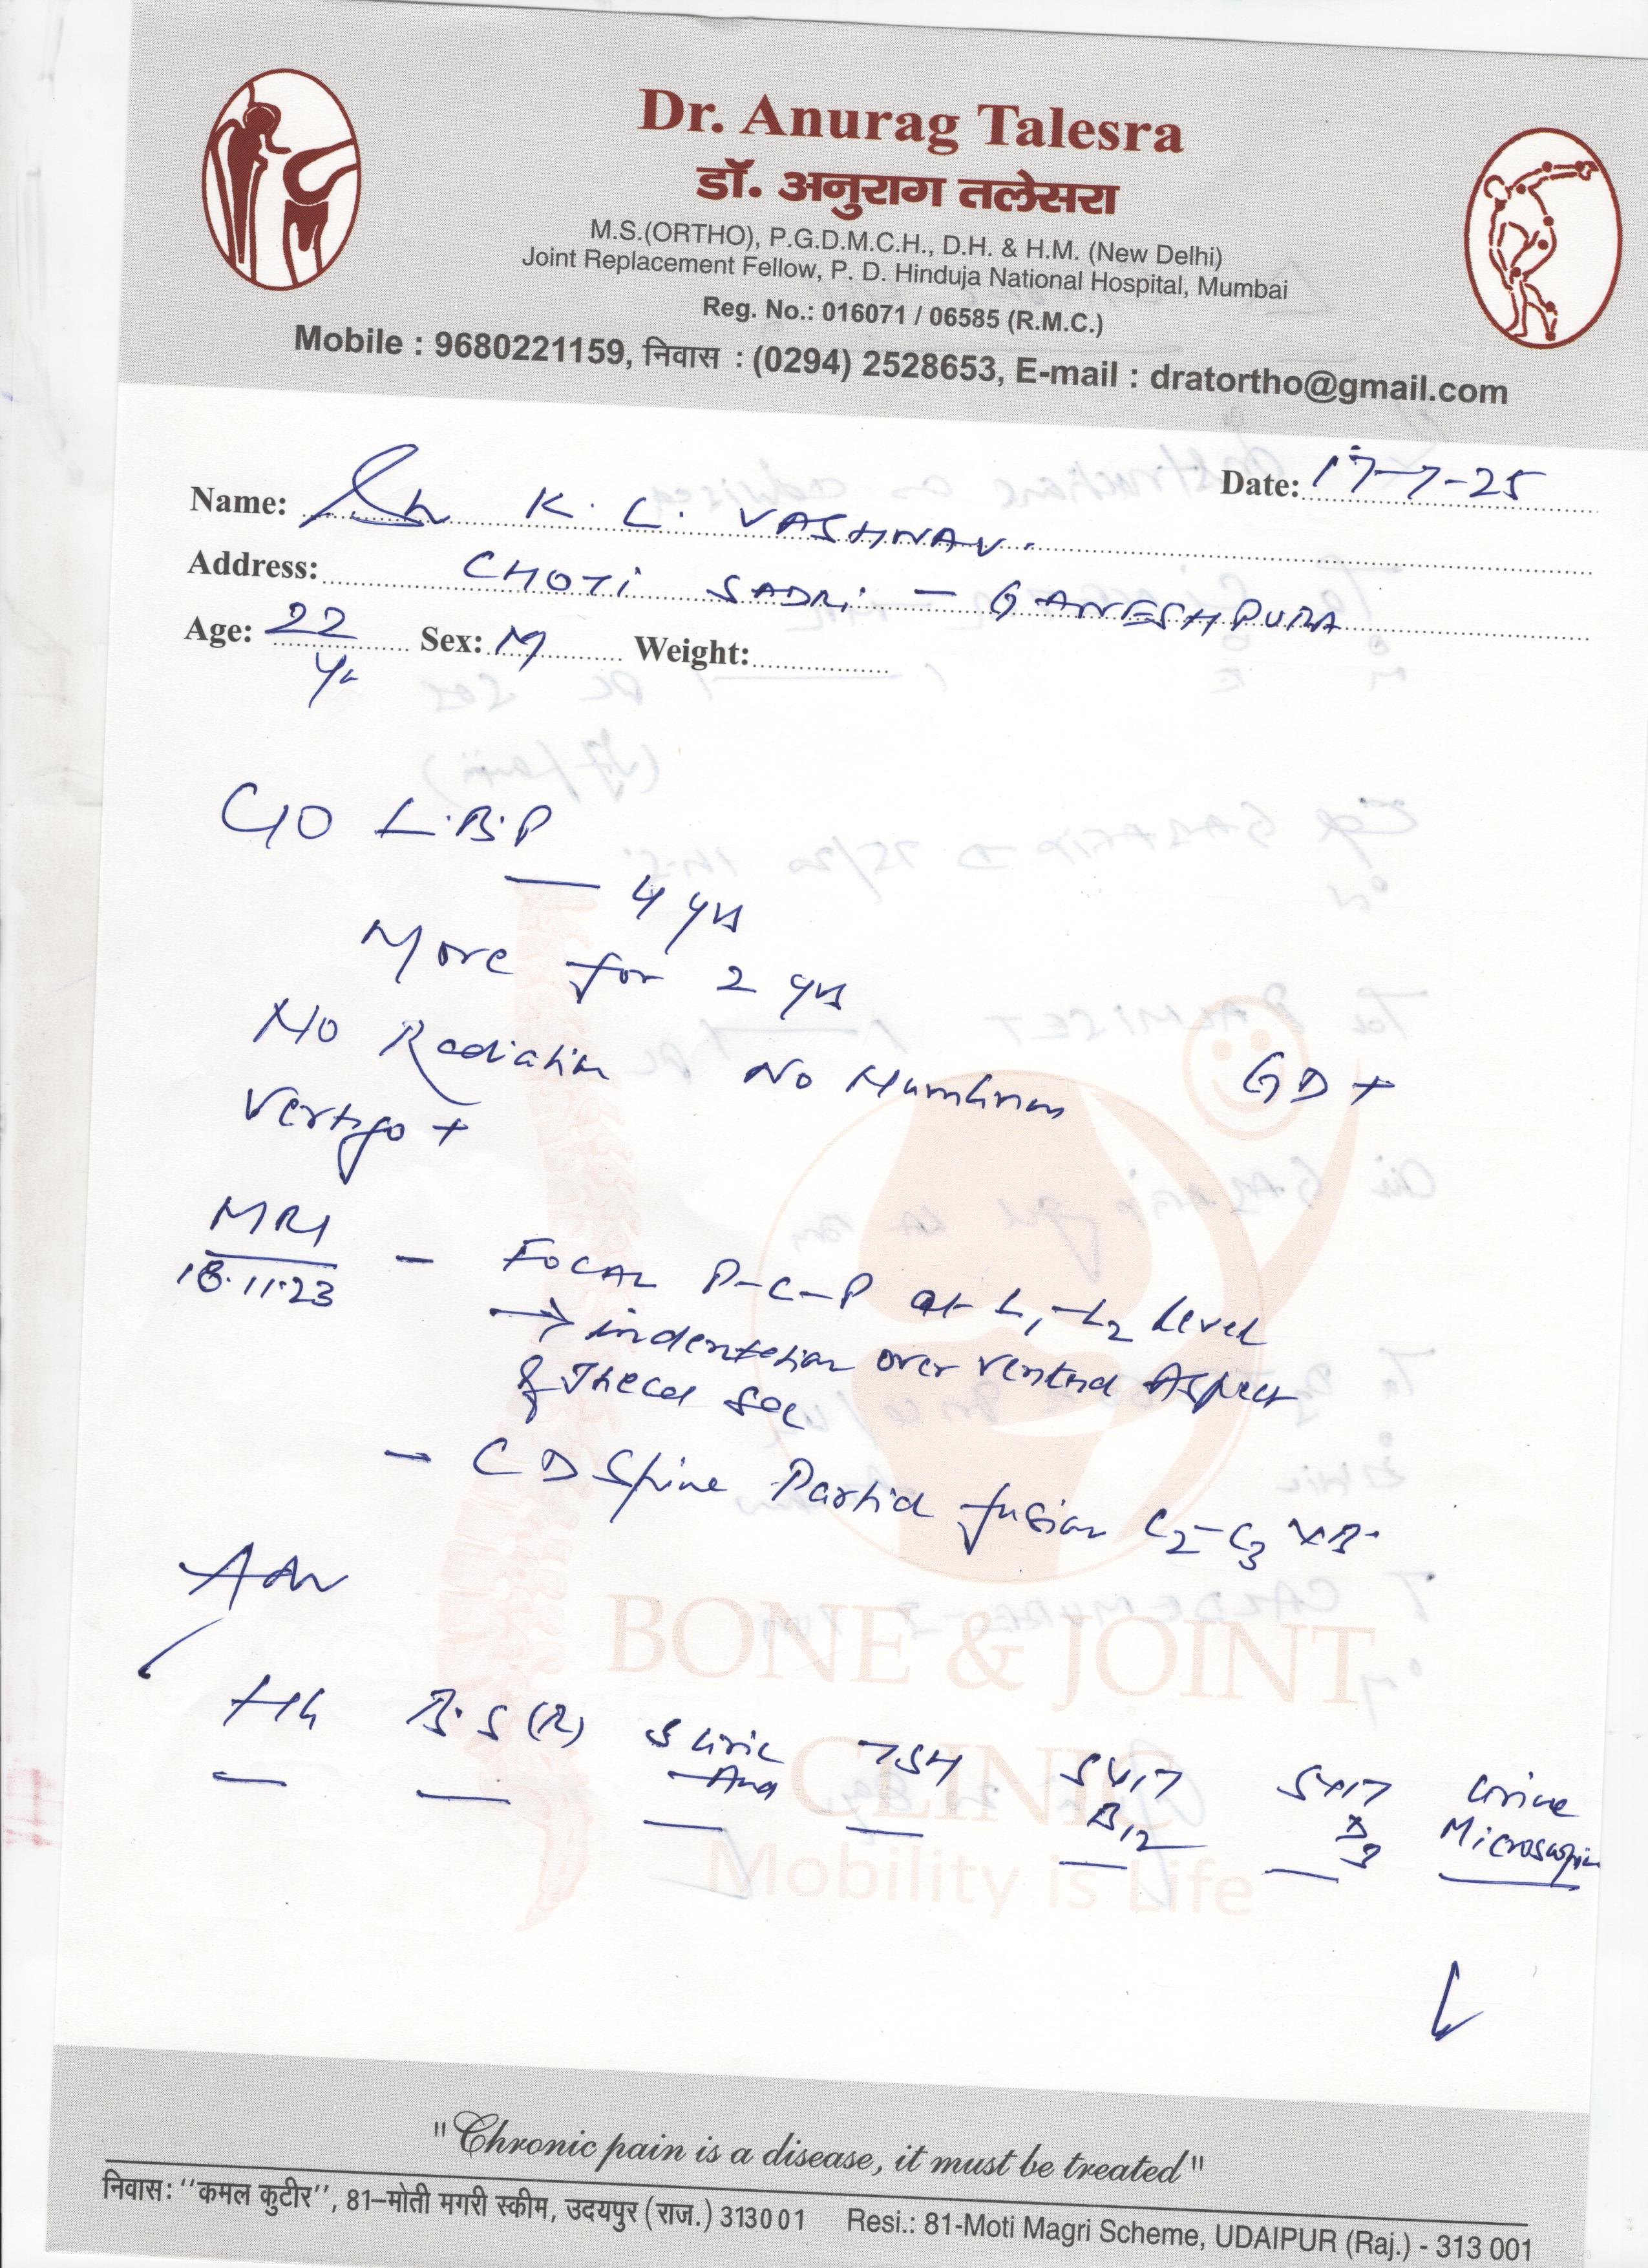 Dr. Anurag Talesra
डॉ. अनुराग तलेसरा
M.S.(ORTHO), P.G.D.M.C.H., D.H. & H.M. (New Delhi)
Joint Replacement Fellow, P. D. Hinduja National Hospital, Mumbai
Reg. No.: 016071 / 06585 (R.M.C.)
Mobile : 9680221159, निवास : (0294) 2528653, E-mail : dratortho@gmail.com
Name: Sh K. L. VASHNAV. Date: 17-7-25
Address: CHOTI SADRI - GANESHPURA
Age: 22 Sex: M Weight:
yr
C/O L.B.P
— 4 yrs
More for 2 yrs
No Radiation No Numbness GD +
Vertigo +
MRI
18.11.23
- FOCAL P-C-P at L1-L2 level
→ indentation over ventral Aspect
of Thecal Sac
- CD Spine Partial fusion C2-C3 V.B.
Adv
Hb B.S (R) S Uric TSH S Vit S Vit Urine
Acid B12 D3 Microscopic
BONE & JOINT
CLINIC
Mobility is Life
"Chronic pain is a disease, it must be treated"
निवास: ''कमल कुटीर'', 81–मोती मगरी स्कीम, उदयपुर (राज.) 313001 Resi.: 81-Moti Magri Scheme, UDAIPUR (Raj.) - 313 001